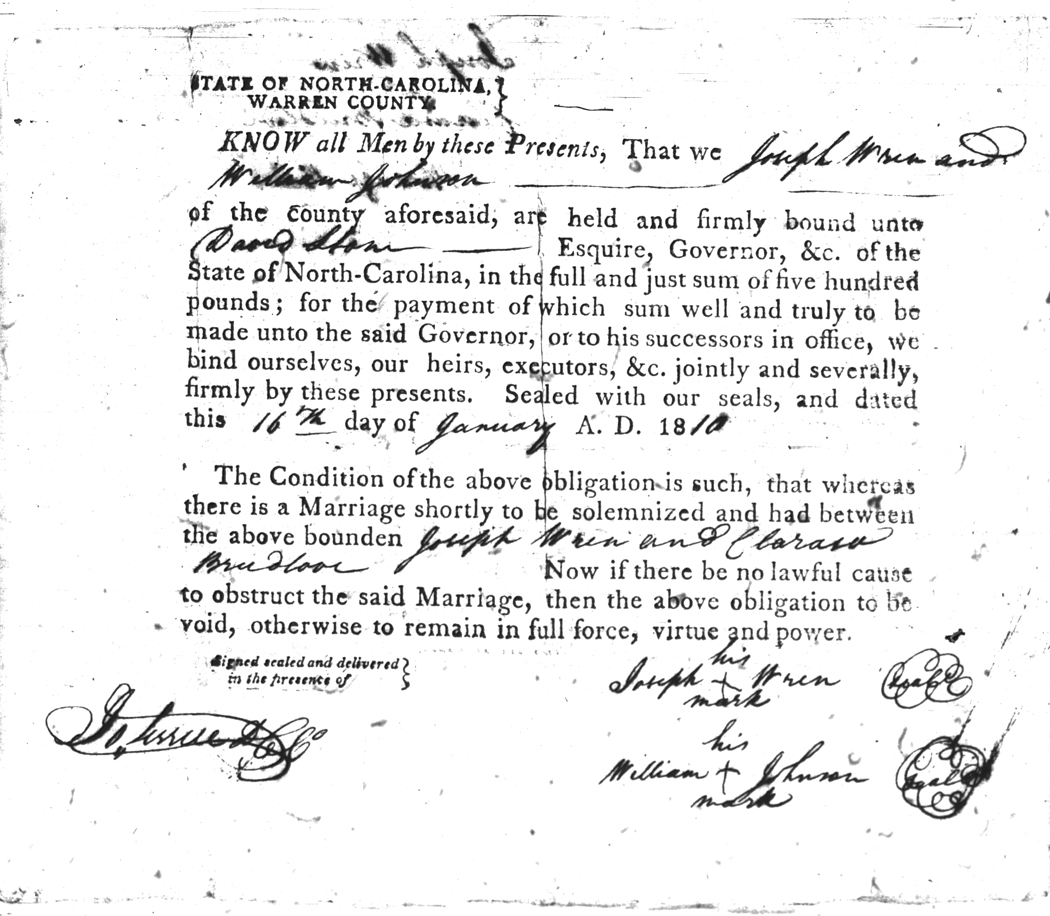 STATE OF NORTH-CAROLINA,
WARREN COUNTY.
KNOW all Men by these Presents, That we Joseph Wren and
William Johnson
of the county aforesaid, are held and firmly bound unto
David Stone Esquire, Governor, &c. of the
State of North-Carolina, in the full and just sum of five hundred
pounds; for the payment of which sum well and truly to be
made unto the said Governor, or to his successors in office, we
bind ourselves, our heirs, executors, &c. jointly and severally,
firmly by these presents. Sealed with our seals, and dated
this 16th day of January A. D. 1810
The Condition of the above obligation is such, that whereas
there is a Marriage shortly to be solemnized and had between
the above bounden Joseph Wren and
Now if there be no lawful cause
to obstruct the said Marriage, then the above obligation to be
void, otherwise to remain in full force, virtue and power.
Signed sealed and delivered
in the presence of
his
Joseph + Wren seal
mark
his
William + Johnson seal
mark